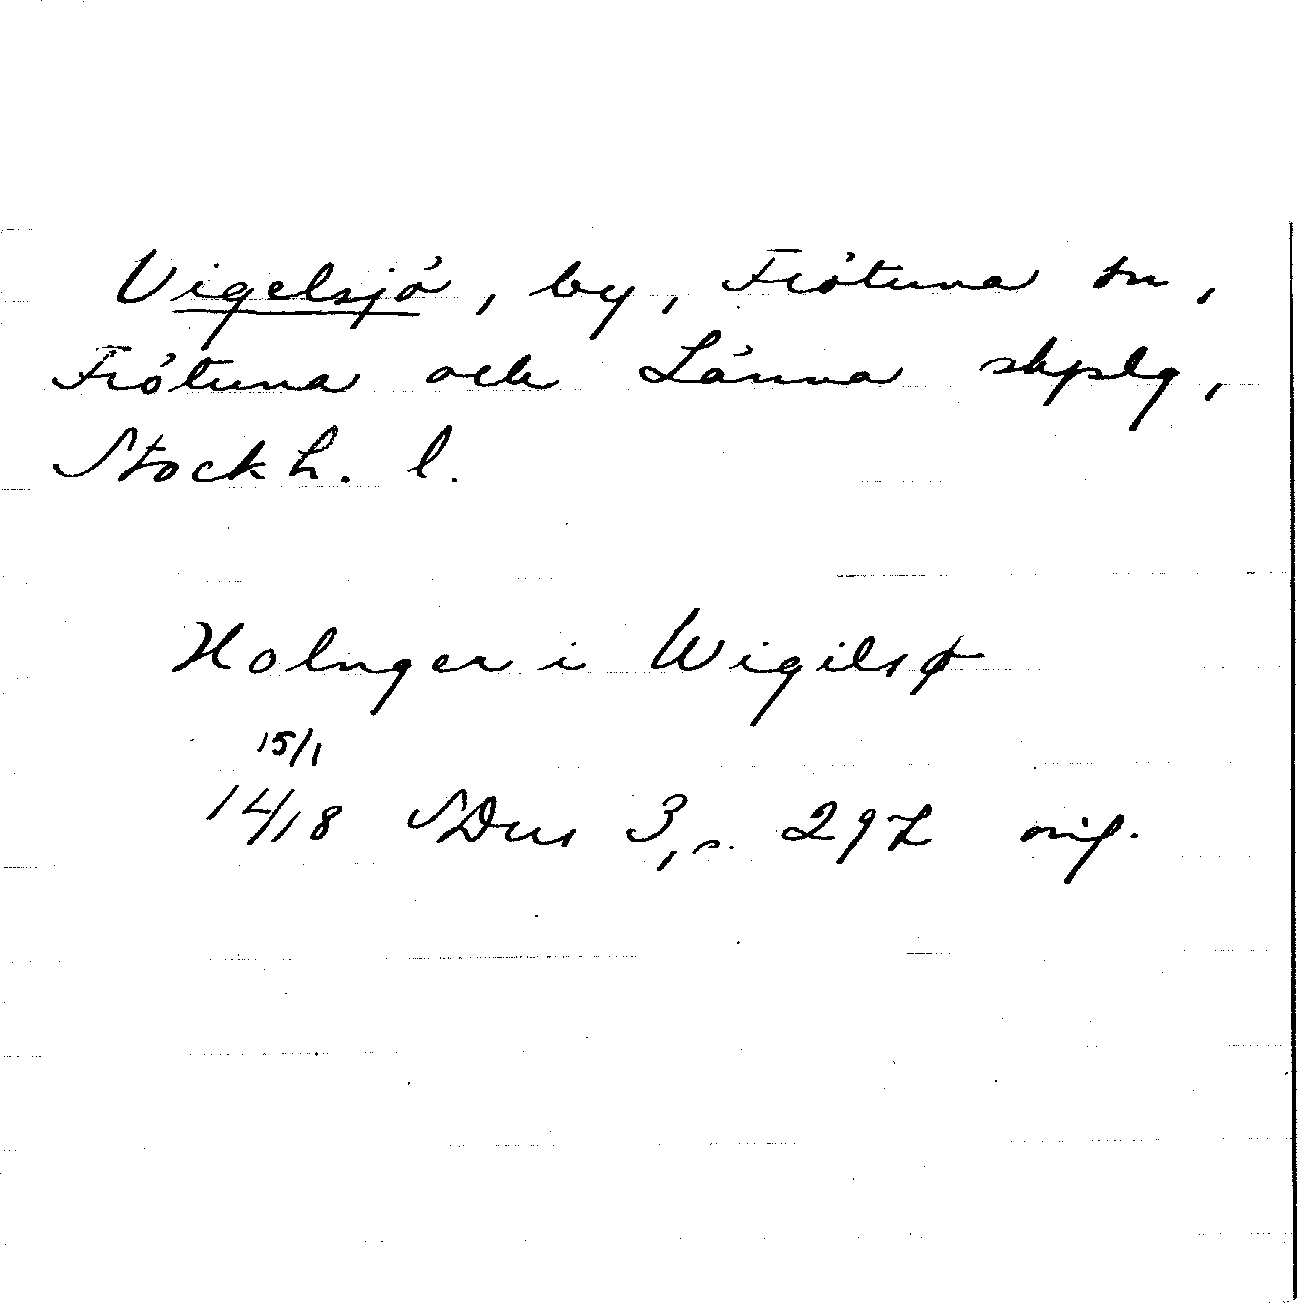 Vigelsjö, by, Frötuna sn,
Frötuna och Länna skplg,
Stockh. l.
Holnger i Wigilsø
15/1
1418 SDns 3, s. 292 orig.